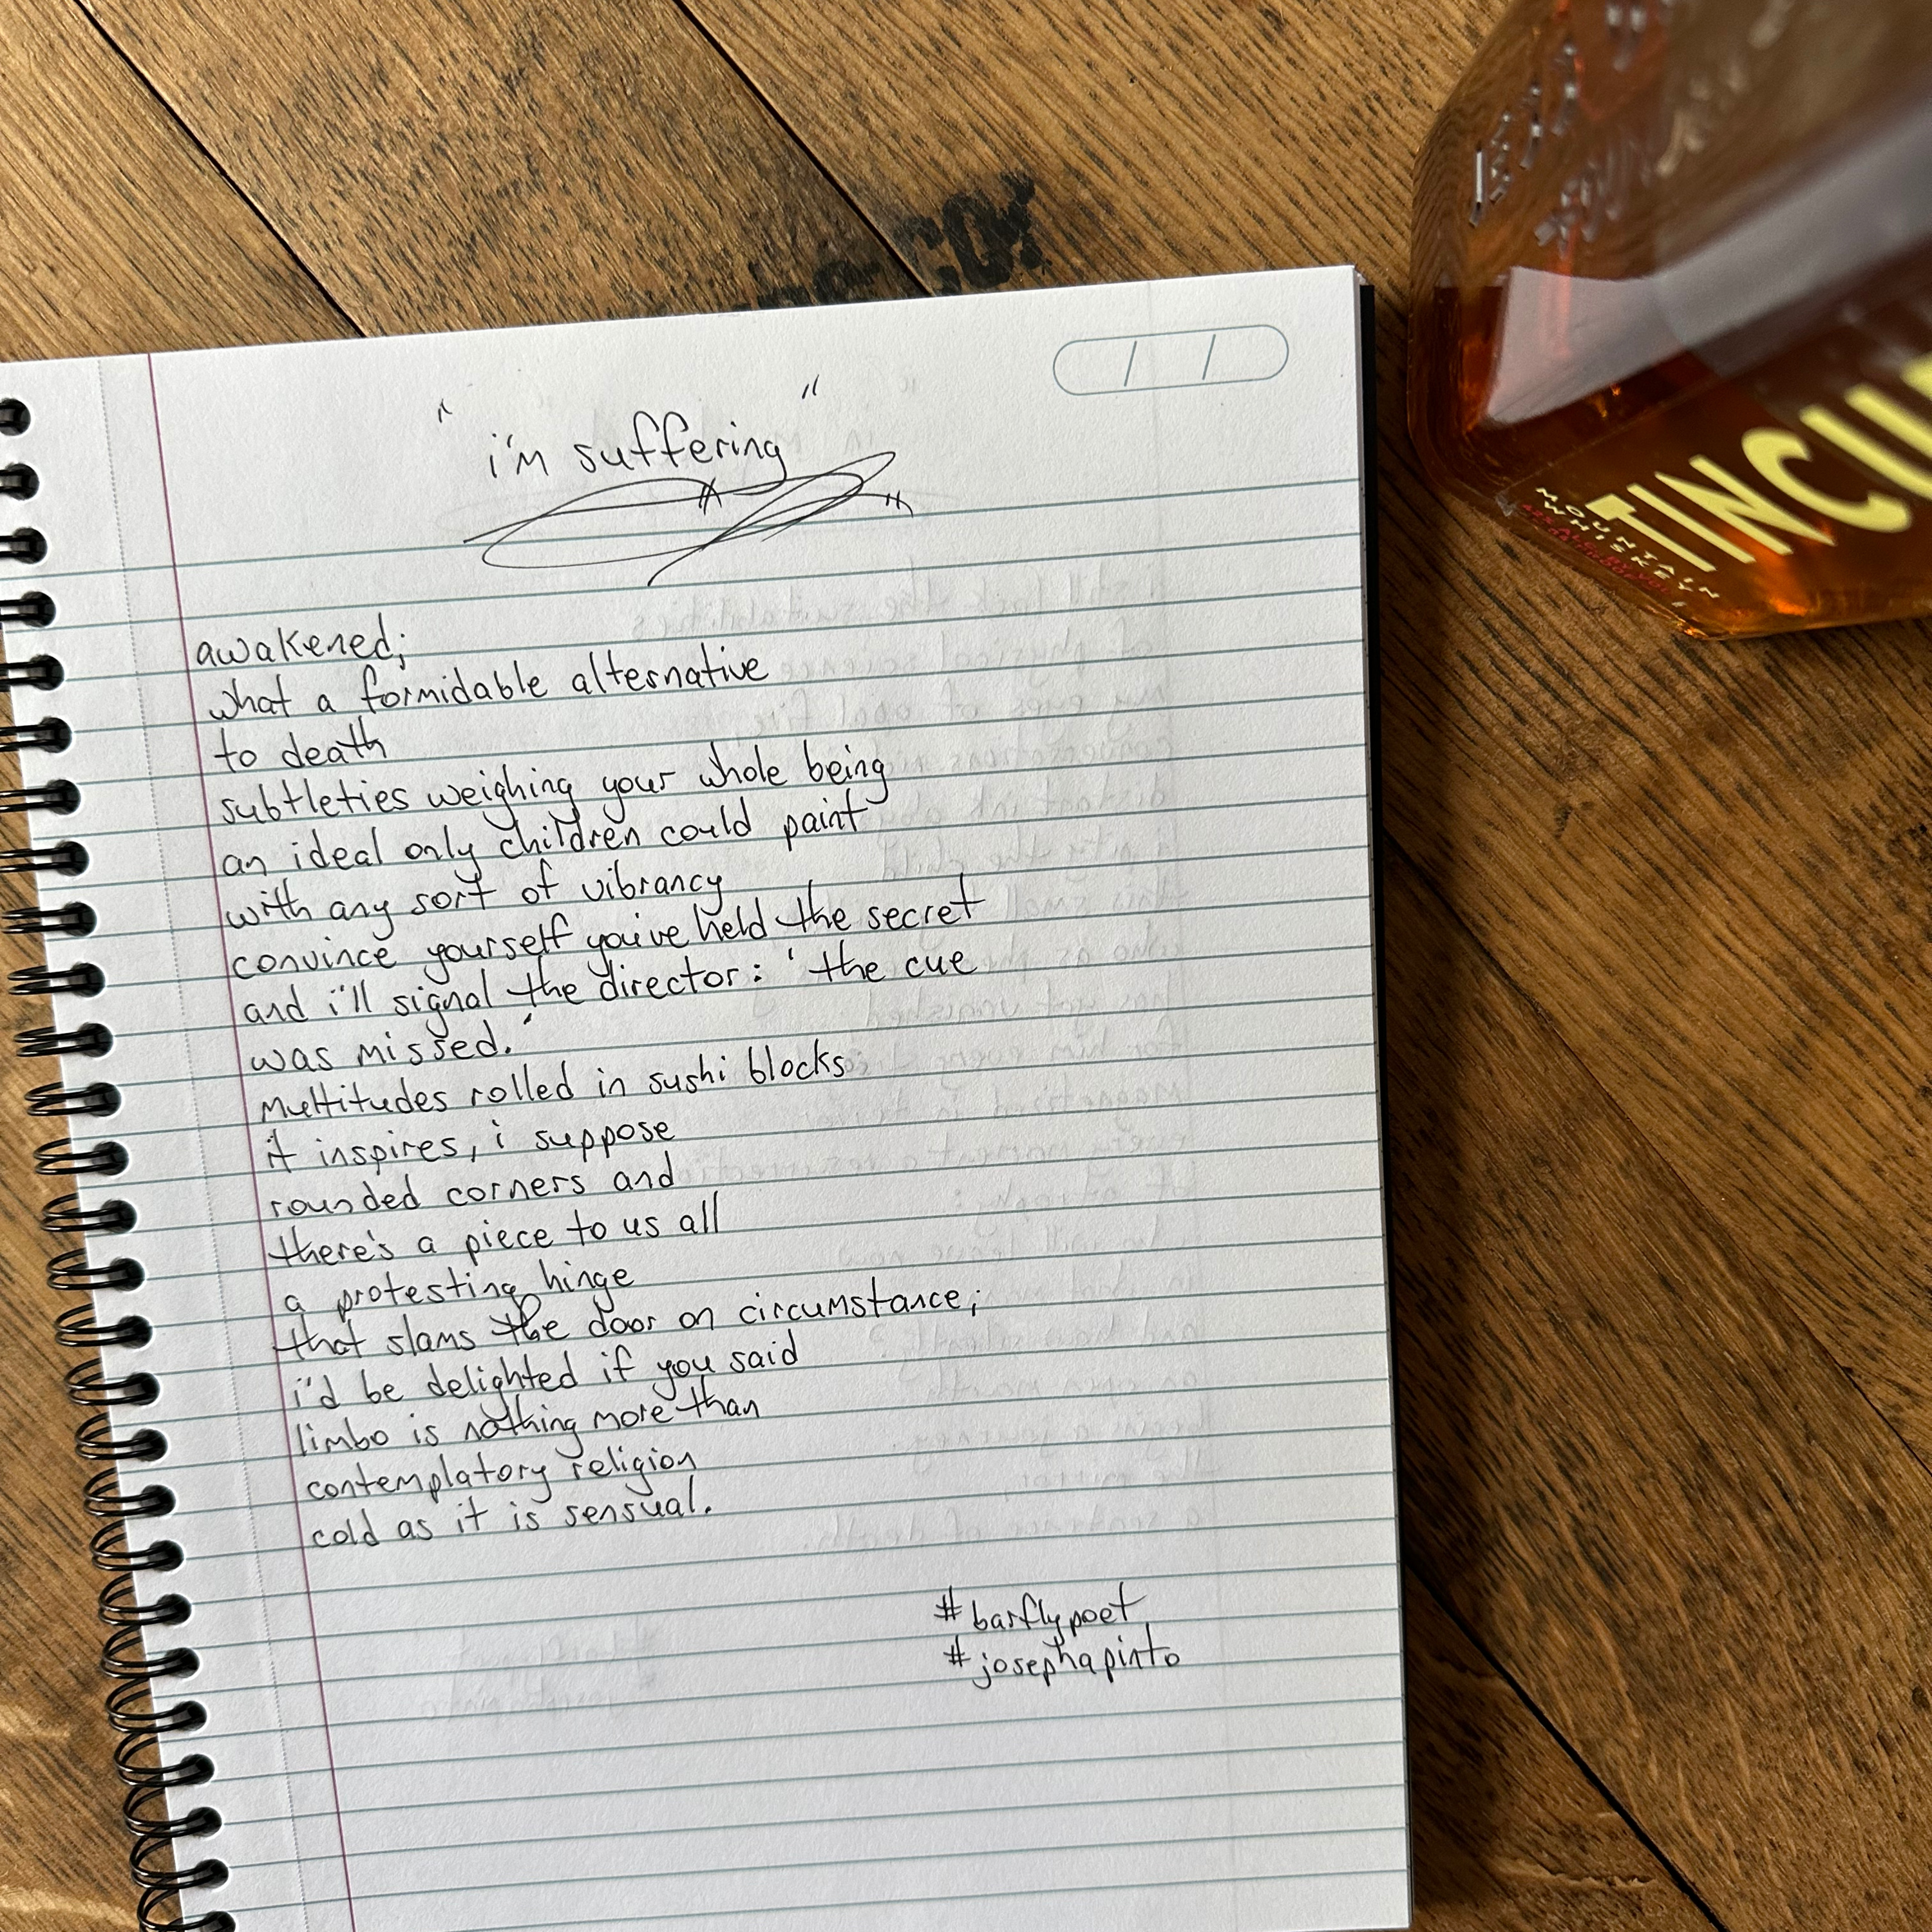 CO
"i'm suffering"
awakened;
what a formidable alternative
to death
subtleties weighing your whole being
an ideal only children could paint
with any sort of vibrancy
convince yourself you've held the secret
and i'll signal the director: 'the cue
was missed.'
multitudes rolled in sushi blocks
it inspires, i suppose
rounded corners and
there's a piece to us all
a protesting hinge
that slams the door on circumstance;
i'd be delighted if you said
limbo is nothing more than
contemplatory religion
cold as it is sensual.
#barflypoet
#josephapinto
TINCU
MOUNTAIN
WHISKEY